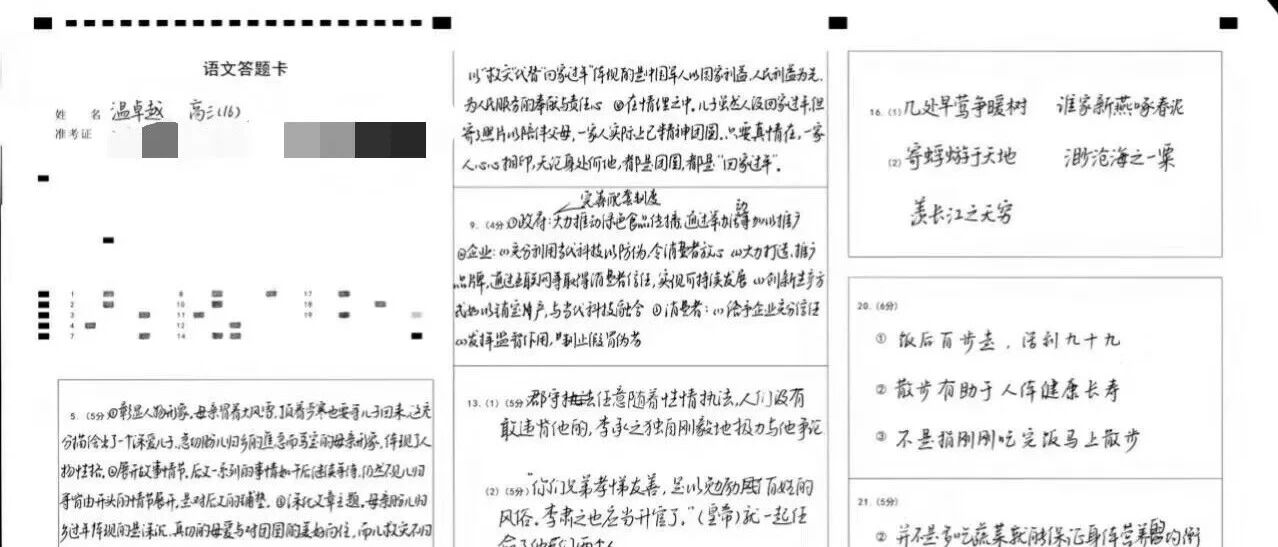 语文答题卡
姓 名 温卓越 高三(16)
准考证
1 8 17
2 10 18
3 11 19
4 12
7 14
5. (5分)①彰显人物形象。母亲冒着大风雪,顶着严寒也要等儿子回来,这充
分描绘出了一个深爱儿子、急切盼儿归乡的焦急而笃定的母亲形象,体现了人
物性格。②展开故事情节。后文一系列的事情如午后继续等待、仍然不见儿归
等皆由开头的情节展开,是对后文的铺垫。③深化文章主题。母亲盼儿归
乡过年体现的是深沉、真切的母爱与对团圆的美好向往,而儿救灾不归
以“救灾”代替“回家过年”体现的是中国军人以国家利益、人民利益为先,
为人民服务的奉献与责任心 ②在情理之中。儿子虽然人没回家过年,但
寄了照片以陪伴父母,一家人实际上已精神团圆。只要真情在,一家
人心心相印,无论身处何地,都是团圆,都是“回家过年”。
完善配套制度
9. (4分)①政府:大力推动绿色食品传播,通过举办 等加以推广
②企业:(1)充分利用当代科技以防伪,令消费者放心 (2)大力打造、推广
品牌,通过互联网等取得消费者信任,实现可持续发展 (3)创新生产方
式 ,与当代科技融合 ③消费者:(1)给予企业充分信任
(2)发挥监督作用, 制止假冒伪者
13. (1) (5分) 郡守执法任意随着性情执法,人们没有
敢违背他的,李承之独自刚毅地极力与他争论
(2) (5分) “你们兄弟孝悌友善,足以勉励 百姓的
风俗。李肃之也应当升官了。”(皇帝)就一起任
命了他们两个人
16. (1) 几处早莺争暖树 谁家新燕啄春泥
(2) 寄蜉蝣于天地 渺沧海之一粟
羡长江之无穷
20. (6分)
① 饭后百步走,活到九十九
② 散步有助于人体健康长寿
③ 不是指刚刚吃完饭马上散步
21. (5分)
② 并不是多吃蔬菜就能保证身体营养 的均衡